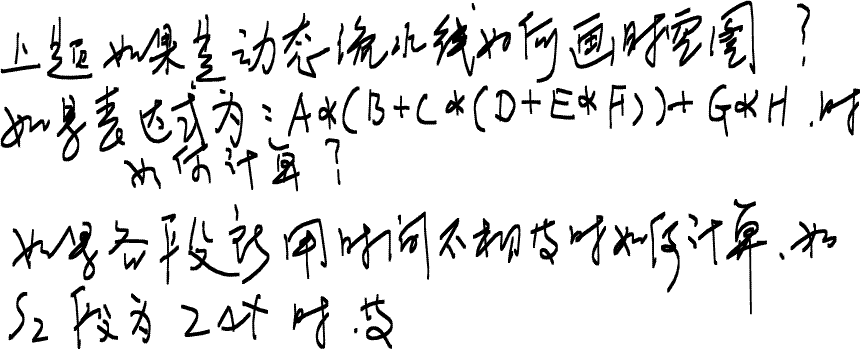 上题如果是动态流水线如何画时空图?
如果表达式为:A*(B+C*(D+E*F))+G*H.时
如何计算?
如果各段所用时间不相等时如何计算、如
S2段为2Δt时.等